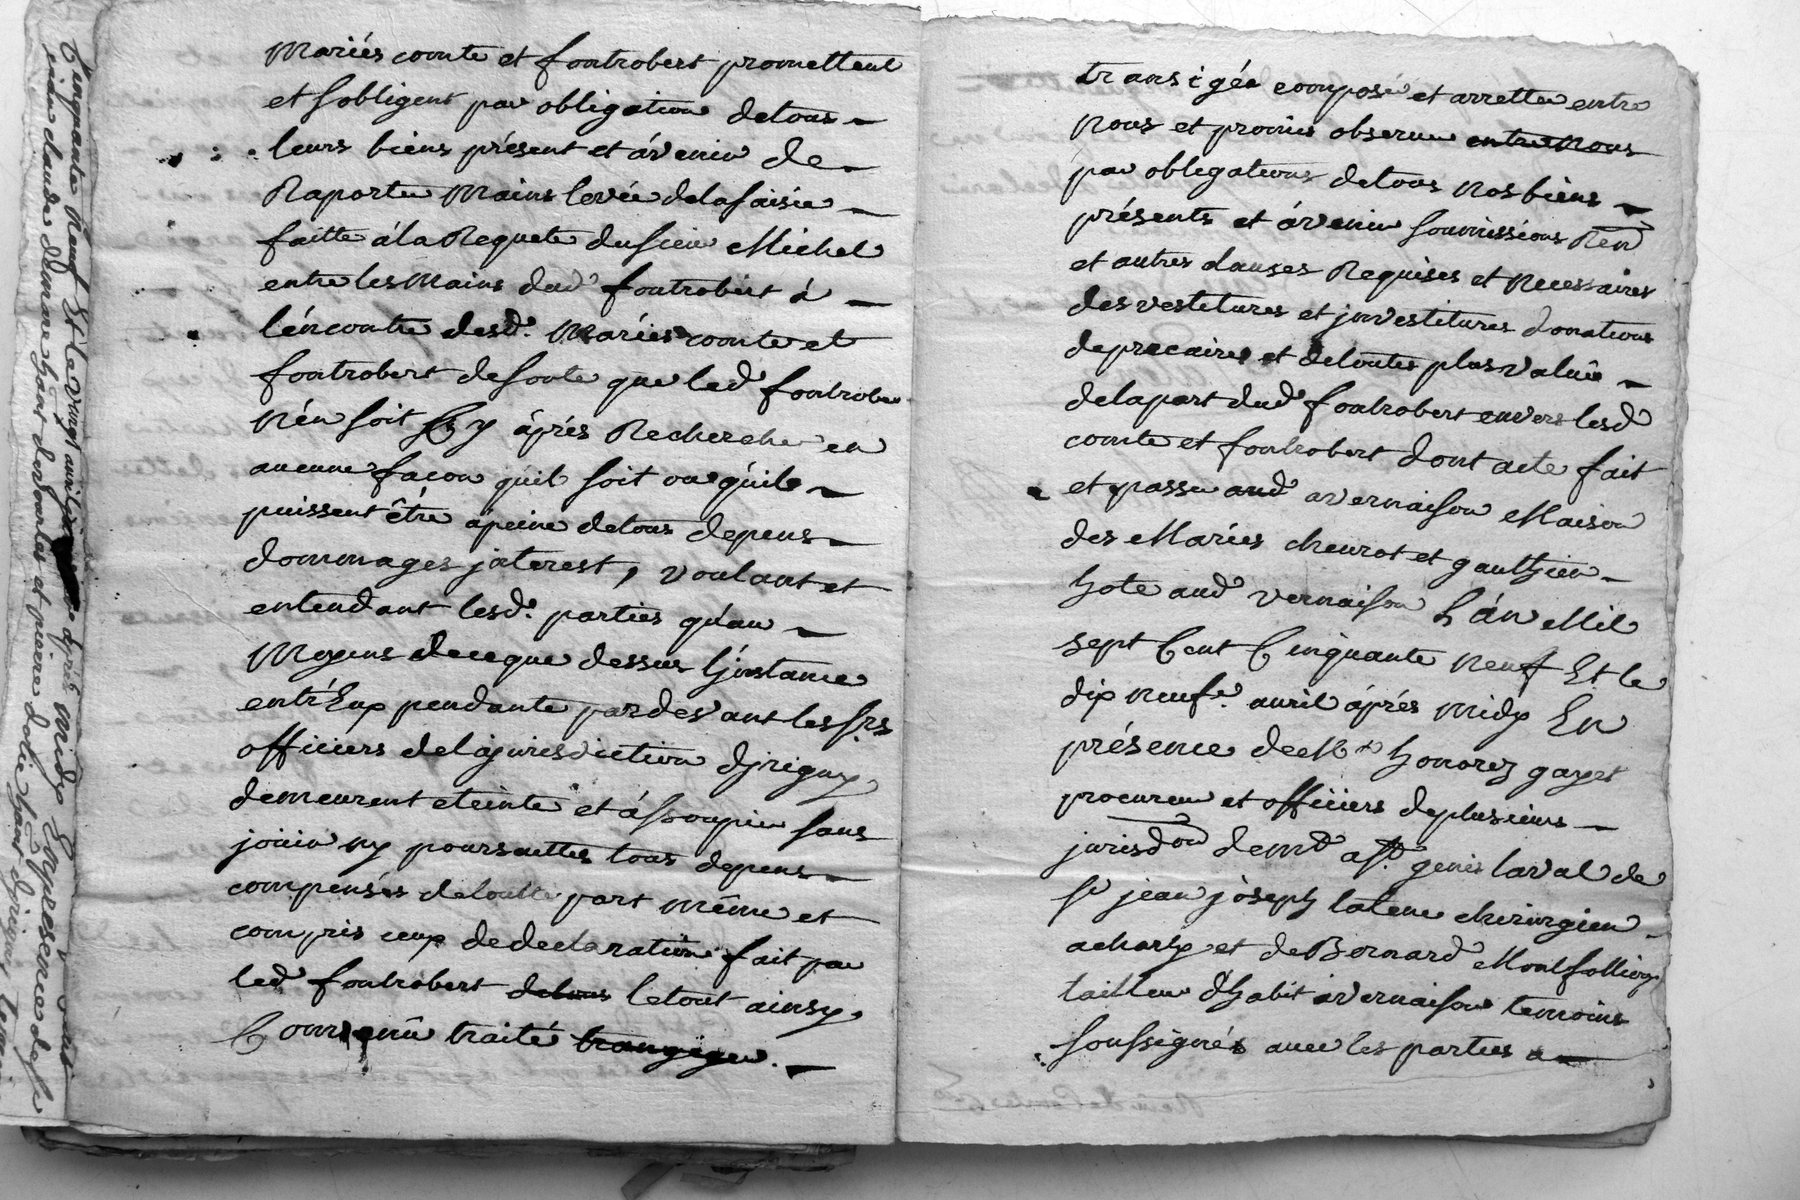 Mariés comte et fontrobert promettent
et sobligent par obligation detous
leurs biens présent et ávenir de
Raporter Mains levée delasaisie
faitte álaRequete dusieur Michel
entre les Mains dud fontrobert á
léncontre desd. Mariés comte et
fontrobert desorte que led fontrober
nén soit áprés Recherché en
aucune facon quil soit ou quils
puissent être apeine detous depens
dommages jnterest, voulant et
entendant lesd. parties qúau
Moyens decequedessus Linstance
entréEux pendante pardevant les srs
officiers delajurisdiction djrigny
demeurent eteinte et ássoupie sans
ny poursuittes tous depens
compensés detoutte part même et
compris ceux dedeclaration fait par
led fontrobert detous letout ainsy
Convenû traité transigée.
transigée composé et arretté entre
Nous et promis observer entre Nous
par obligations detous nos biens
présents et ávenir soumissions Ren
et autres clauses Requises et Necessaires
desvestitures et jnvestitures donations
deprecaires et detoutes plusvaluë
delapart dud fontrobert envers lesd
comte et fontrobert dont acte fait
et passé aud avernaison Maison
des Mariés cheurot et gaulthier
hote aud vernaison Lán Mil
sept Cent Cinquante neuf Et le
dix neufe. avril áprés midy En
présence deMe honorez gayet
procureur et officiers deplusieurs
jurisdon demt ast. genis laval de
sr jean joseph latene chirurgien
acharly et deBernard Montfalliory
tailleur dhabit avernaison temoins
soussignés avec les parties
Cinquante Neuf Et levingt avril après midy Enpresence de
claude demare et pierre djrigny